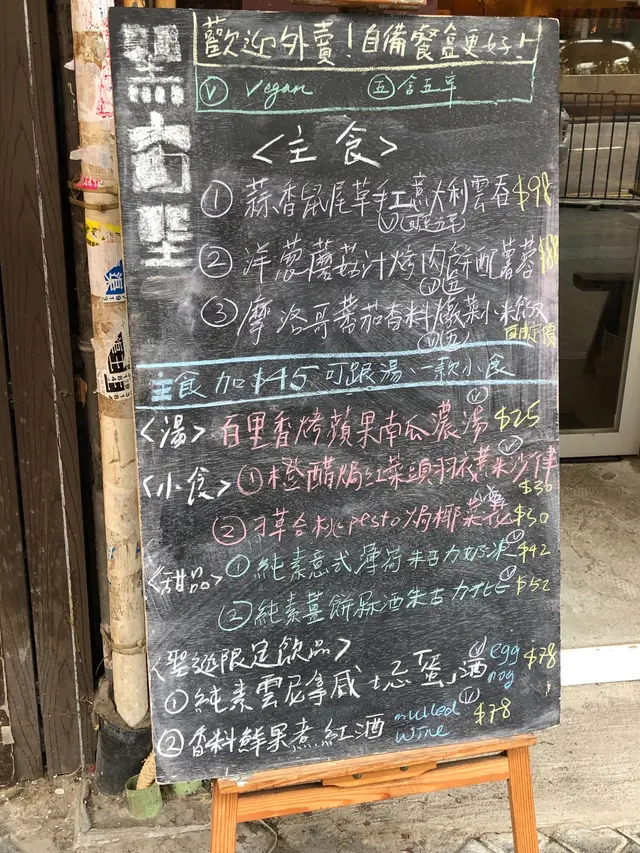 黑窗里
歡迎外賣！自備餐盒更好！
Ⓥ Vegan 五 含五辛
<主食>
① 蒜香鼠尾草手工意大利雲吞 $98
Ⓥ(可走五辛)
② 洋葱蘑菇汁烤肉餅配薯蓉 $88
Ⓥ五
③ 摩洛哥蕃茄香料燉菜小米飯
Ⓥ五 自由定價
主食加$45可跟湯、一款小食
<湯> 百里香烤蘋果南瓜濃湯 Ⓥ $25
<小食> ① 橙醋焗紅菜頭羽衣薏米沙律 Ⓥ $30
② 孖合桃pesto焗椰菜花 Ⓥ $30
<甜品> ① 純素意式薄荷朱古力奶凍 Ⓥ $42
② 純素薑餅冧酒朱古力 Ⓥ $52
<聖誕限定飲品>
① 純素雲尼拿威士忌「蛋」酒 Ⓥ egg nog $78
② 香料鮮果煮紅酒 Ⓥ mulled wine $78